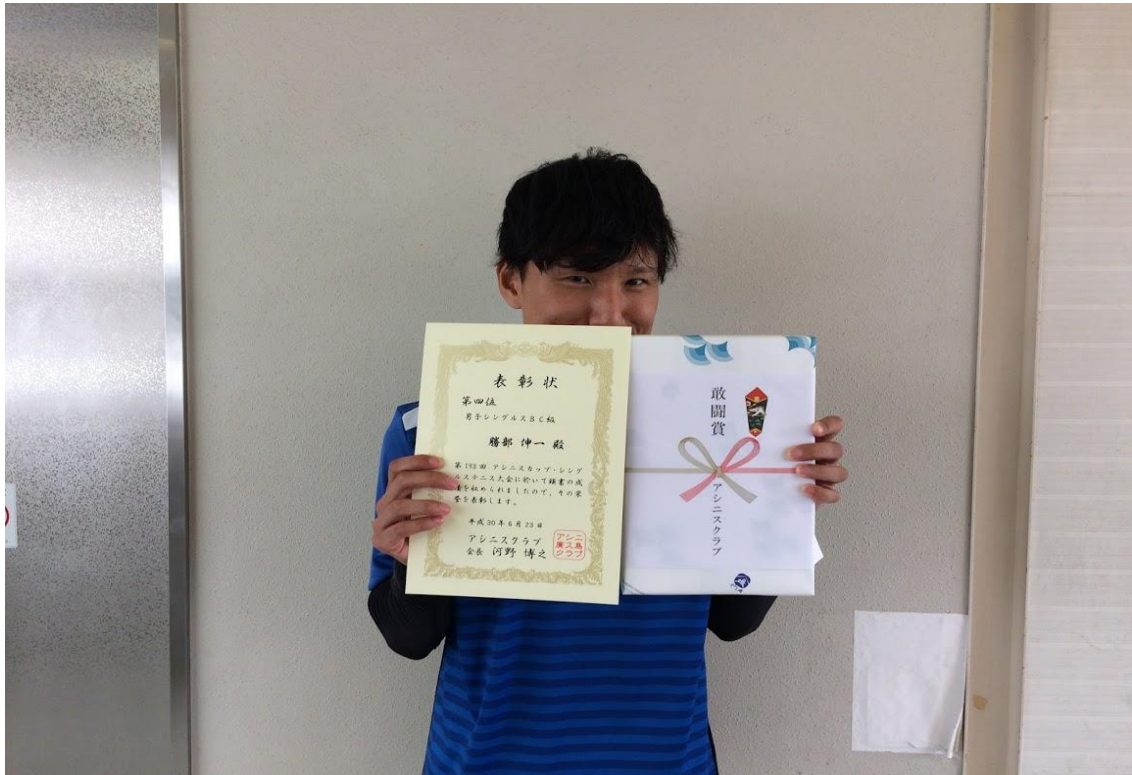 表彰状
第四位
男子シングルスBC級
勝部 伸一 殿
第193回 アシニスカップ・シング
ルステニス大会に於いて頭書の成
績を収められましたので、その栄
誉を表彰します。
平成30年6月23日
アシニスクラブ
会長 河野 博之
アシニ
廣ス島
クラブ
敢闘賞
アシニスクラブ